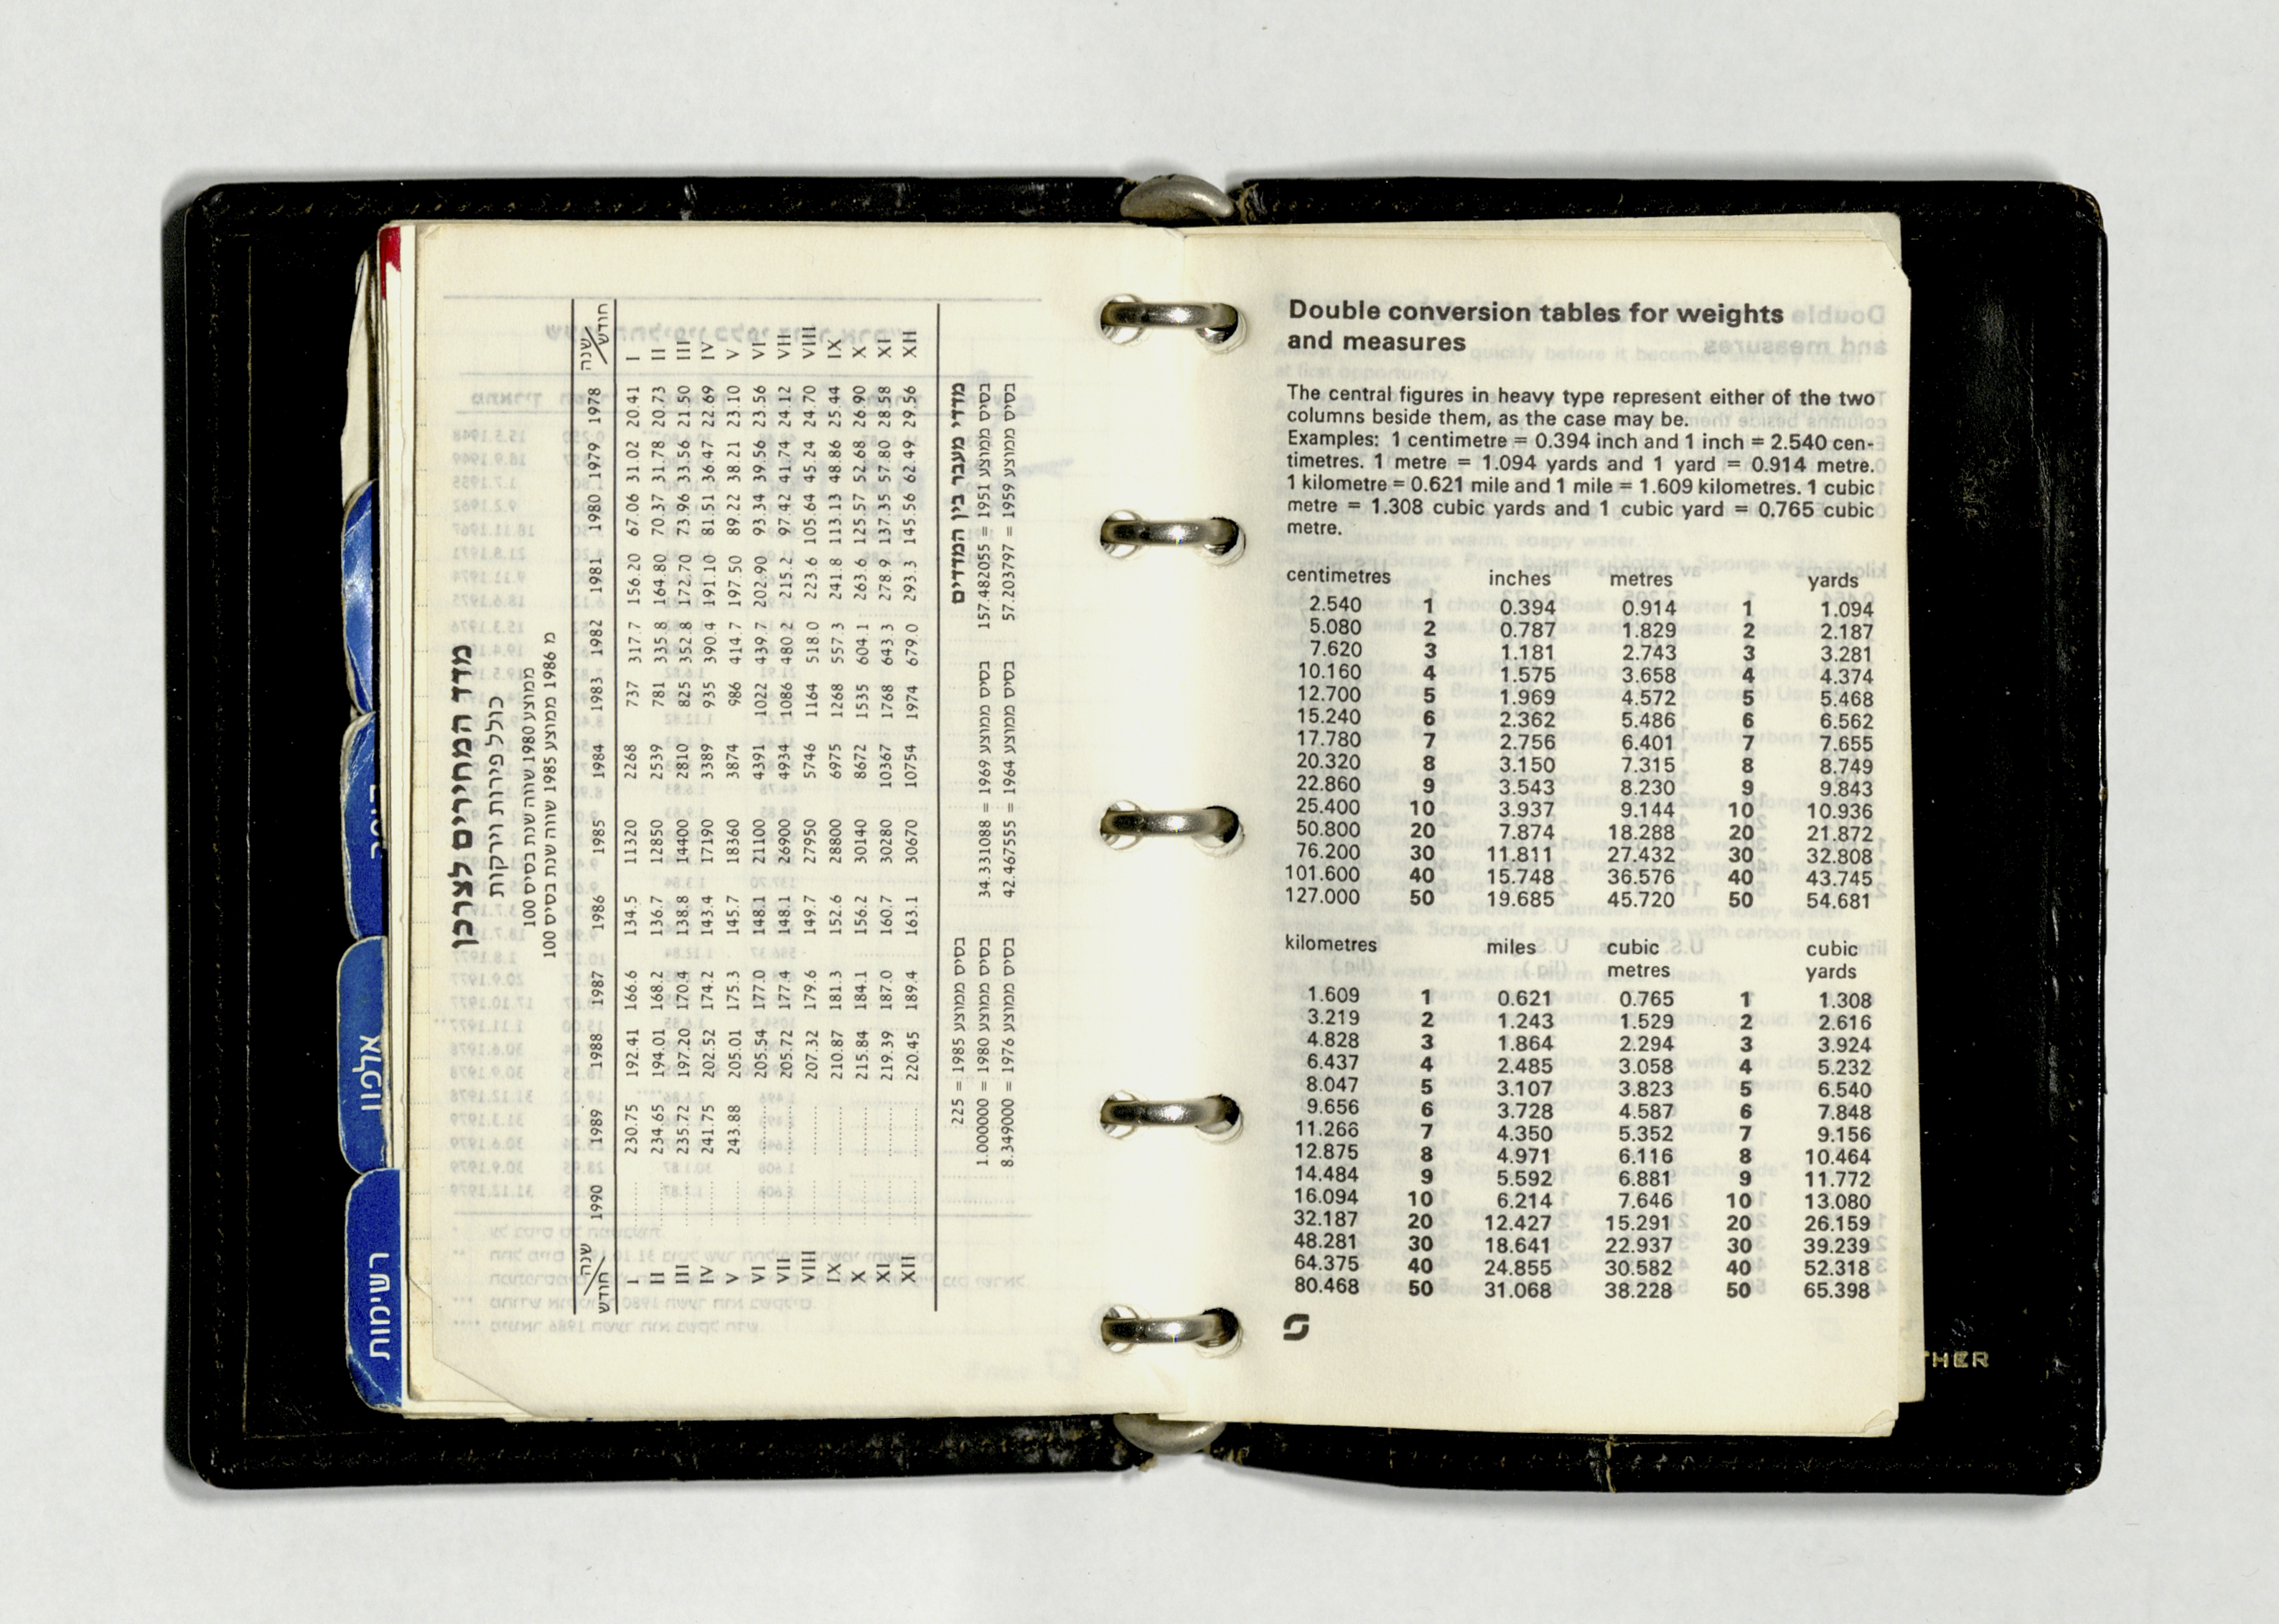 מדד המחירים לצרכן
כולל פירות וירקות
ממוצע 1980 שווה שנת בסיס 100
מ 1986 ממוצע 1985 שווה שנת בסיס 100
שנה/חודש 1990 1989 1988 1987 1986 1985 1984 1983 1982 1981 1980 1979 1978 שנה/חודש
I ........ 230.75 192.41 166.6 134.5 11320 2268 737 317.7 156.20 67.06 31.02 20.41 I
II ........ 234.65 194.01 168.2 136.7 12850 2539 781 335.8 164.80 70.37 31.78 20.73 II
III ........ 235.72 197.20 170.4 138.8 14400 2810 825 352.8 172.70 73.96 33.56 21.50 III
IV ........ 241.75 202.52 174.2 143.4 17190 3389 935 390.4 191.10 81.51 36.47 22.69 IV
V ........ 243.88 205.01 175.3 145.7 18360 3874 986 414.7 197.50 89.22 38.21 23.10 V
VI ........ ........ 205.54 177.0 148.1 21100 4391 1022 439.7 202.90 93.34 39.56 23.56 VI
VII ........ ........ 205.72 177.4 148.1 26900 4934 1086 480.2 215.2 97.42 41.74 24.12 VII
VIII ........ ........ 207.32 179.6 149.7 27950 5746 1164 518.0 223.6 105.64 45.24 24.70 VIII
IX ........ ........ 210.87 181.3 152.6 28800 6975 1268 557.3 241.8 113.13 48.86 25.44 IX
X ........ ........ 215.84 184.1 156.2 30140 8672 1535 604.1 263.6 125.57 52.68 26.90 X
XI ........ ........ 219.39 187.0 160.7 30280 10367 1768 643.3 278.9 137.35 57.80 28.58 XI
XII ........ ........ 220.45 189.4 163.1 30670 10754 1974 679.0 293.3 145.56 62.49 29.56 XII
מדדי מעבר בין המדדים
בסיס ממוצע 1985 = 225
בסיס ממוצע 1951 = 157.482055 בסיס ממוצע 1969 = 34.331088 בסיס ממוצע 1980 = 1.000000
בסיס ממוצע 1959 = 57.203797 בסיס ממוצע 1964 = 42.467555 בסיס ממוצע 1976 = 8.349000
אלפון
רשימות
Double conversion tables for weights
and measures
The central figures in heavy type represent either of the two
columns beside them, as the case may be.
Examples: 1 centimetre = 0.394 inch and 1 inch = 2.540 cen-
timetres. 1 metre = 1.094 yards and 1 yard = 0.914 metre.
1 kilometre = 0.621 mile and 1 mile = 1.609 kilometres. 1 cubic
metre = 1.308 cubic yards and 1 cubic yard = 0.765 cubic
metre.
centimetres inches metres yards
2.540 1 0.394 0.914 1 1.094
5.080 2 0.787 1.829 2 2.187
7.620 3 1.181 2.743 3 3.281
10.160 4 1.575 3.658 4 4.374
12.700 5 1.969 4.572 5 5.468
15.240 6 2.362 5.486 6 6.562
17.780 7 2.756 6.401 7 7.655
20.320 8 3.150 7.315 8 8.749
22.860 9 3.543 8.230 9 9.843
25.400 10 3.937 9.144 10 10.936
50.800 20 7.874 18.288 20 21.872
76.200 30 11.811 27.432 30 32.808
101.600 40 15.748 36.576 40 43.745
127.000 50 19.685 45.720 50 54.681
kilometres miles cubic cubic
metres yards
1.609 1 0.621 0.765 1 1.308
3.219 2 1.243 1.529 2 2.616
4.828 3 1.864 2.294 3 3.924
6.437 4 2.485 3.058 4 5.232
8.047 5 3.107 3.823 5 6.540
9.656 6 3.728 4.587 6 7.848
11.266 7 4.350 5.352 7 9.156
12.875 8 4.971 6.116 8 10.464
14.484 9 5.592 6.881 9 11.772
16.094 10 6.214 7.646 10 13.080
32.187 20 12.427 15.291 20 26.159
48.281 30 18.641 22.937 30 39.239
64.375 40 24.855 30.582 40 52.318
80.468 50 31.068 38.228 50 65.398
THER